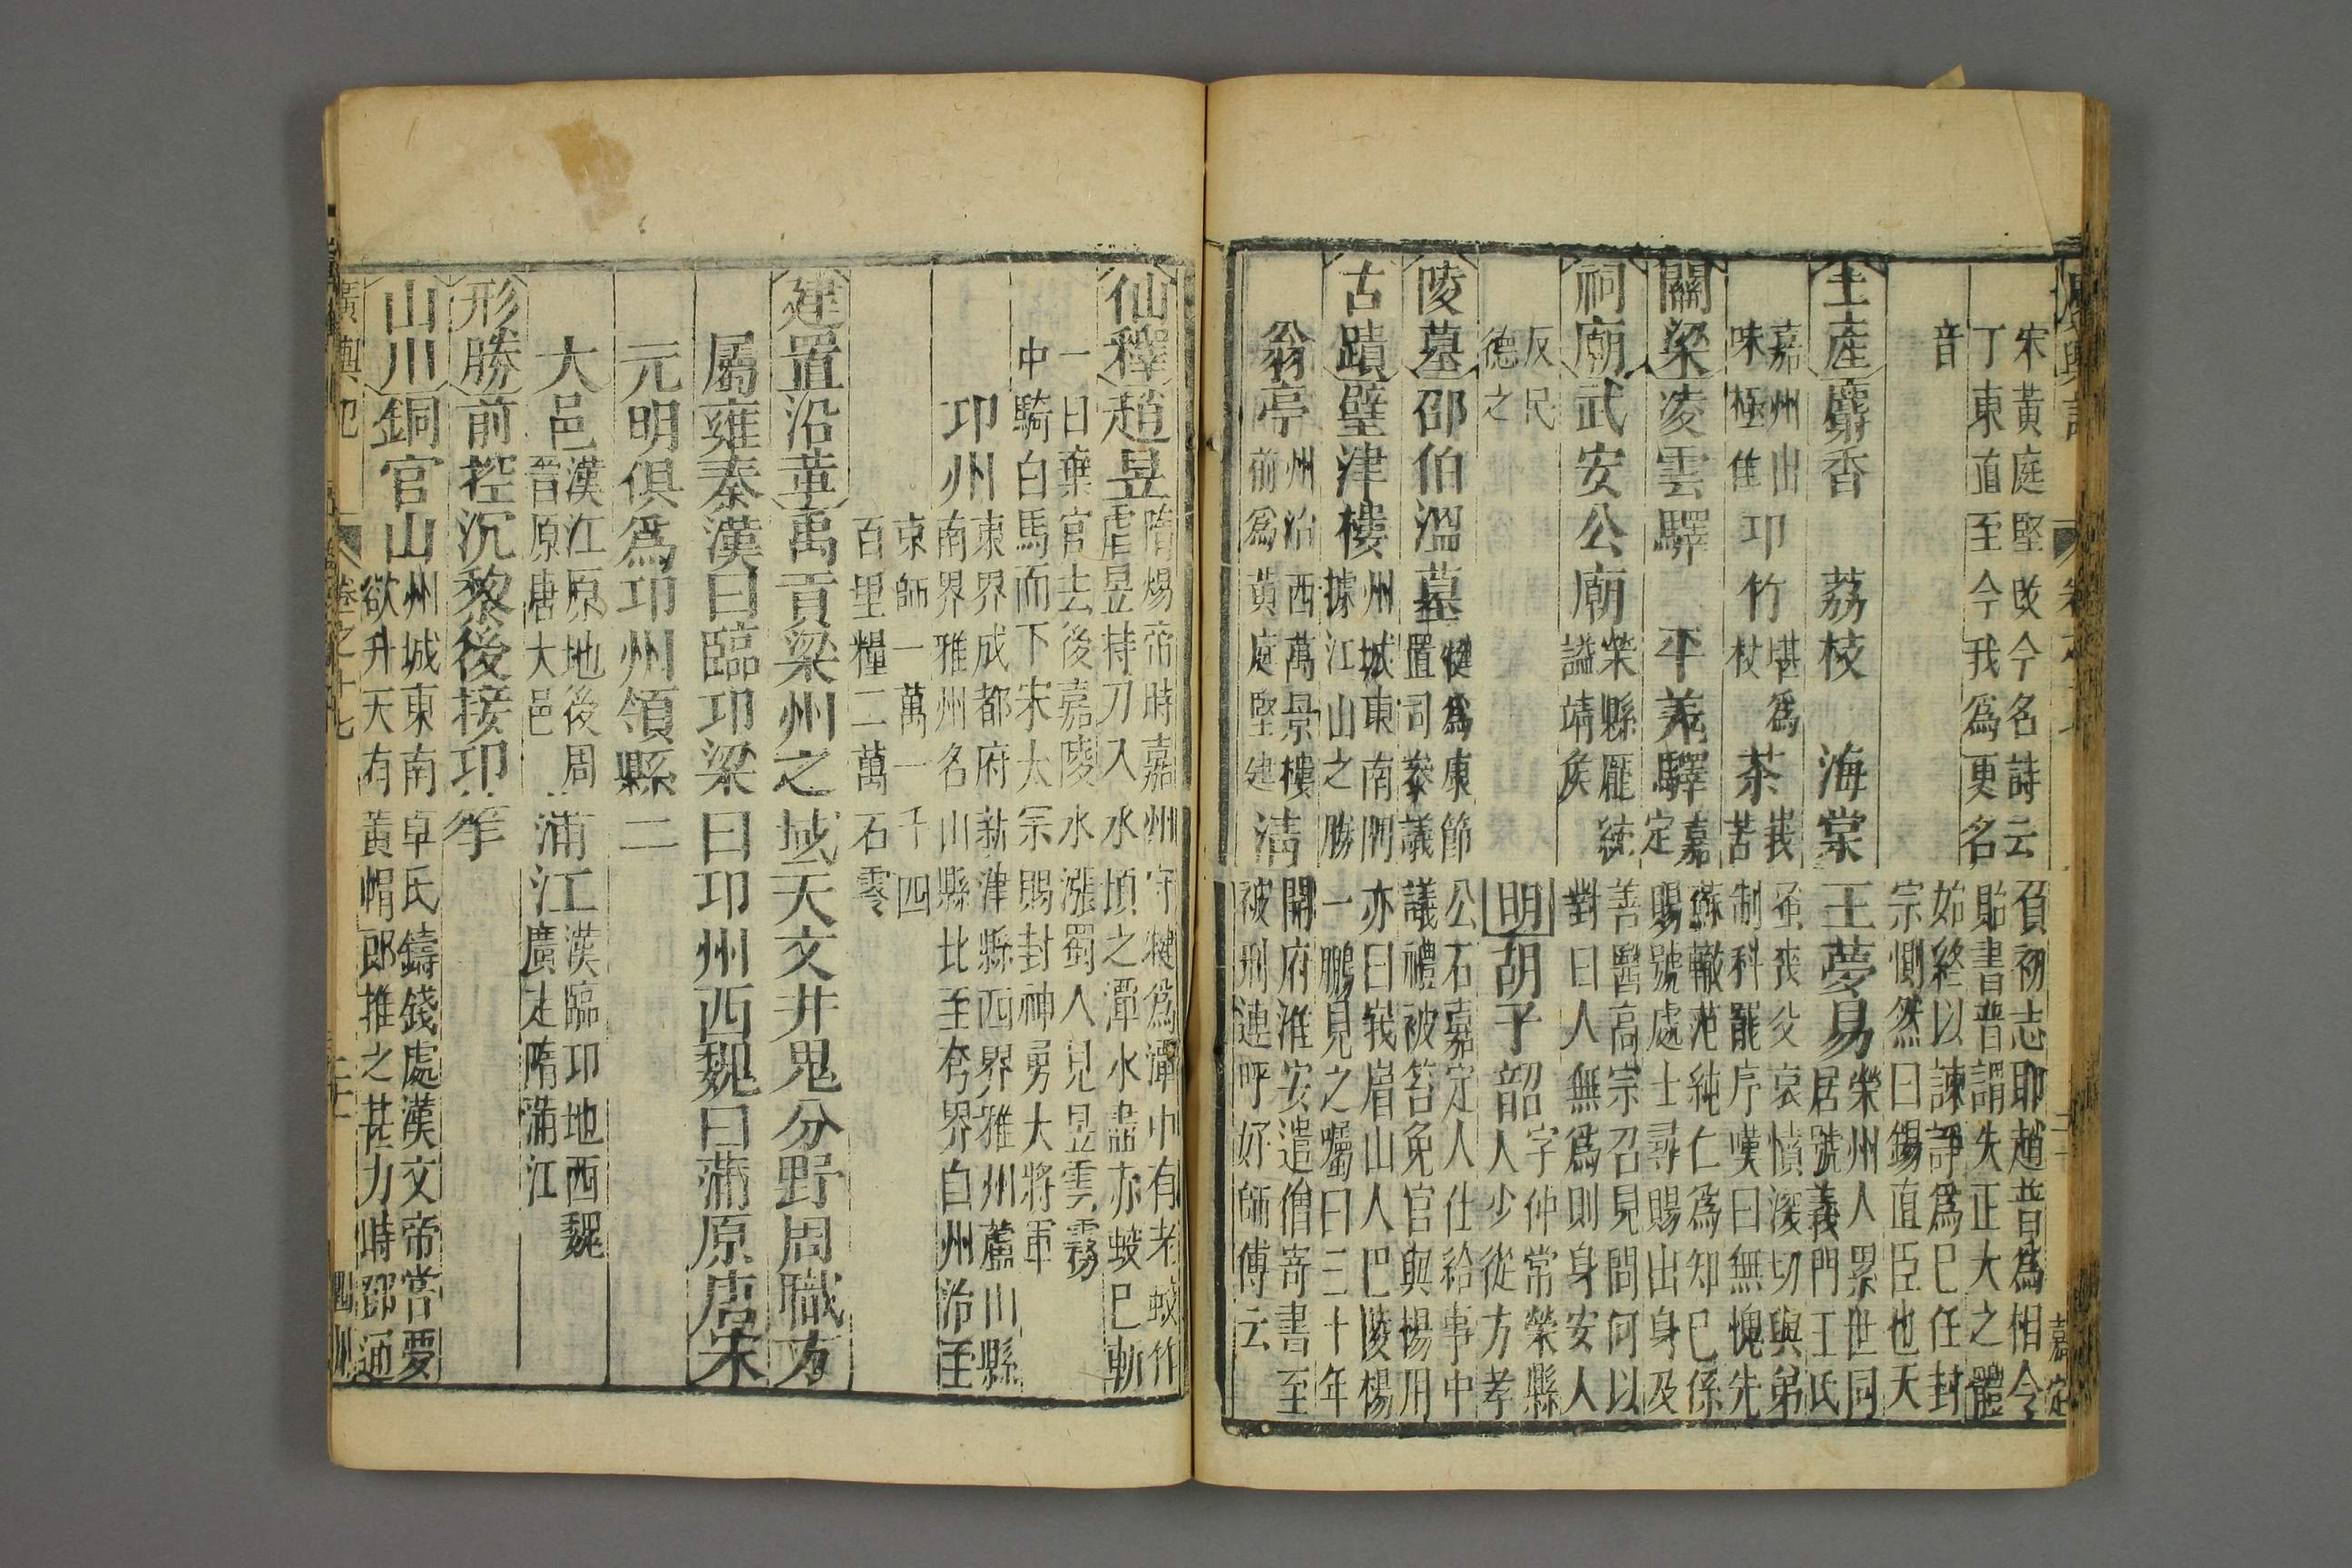 宋黃庭堅改今名詩云
丁東直至今我爲更名
音
土產 麝香 荔枝 海棠
嘉州出
味極佳
邛竹
堪爲
杖
茶
峩
苦
關梁 凌雲驛 平羌驛
嘉
定
祠廟 武安公廟
榮縣厖統
謚靖矦
反民
德之
陵墓 邵伯溫墓
犍爲康節
置司叅議
古蹟 璧津樓
州城東南門
據江山之勝
清
翁亭
州治西萬景樓
前爲黃庭堅建
負初志耶趙普爲相令
貽書普謂失正大之體
始終以諫諍爲巳任封
宗惻然曰錫直臣也天
王夢易
榮州人累世同
居號義門王氏
蚤喪父哀憤深切與弟
制科罷序嘆曰無愧先
蘇轍范純仁爲知巳係
賜號處士尋賜出身及
善醫高宗召見問何以
對曰人無爲則身安人
明 胡子韶
字仲常榮縣
人少從方孝
公石嘉定人仕給事中
議禮被笞免官與楊用
亦曰峩眉山人巴陵楊
一鵬見之囑曰三十年
開府淮安遣僧寄書至
被刑連呼好師傅云
嘉定
仙釋 趙昱
隋煬帝時嘉州守犍爲潭中有老蛟作
虐昱持刀入水頃之潭水盡赤蛟巳斬
一日棄官去後嘉陵水漲蜀人見昱雲霧
中騎白馬而下宋太宗賜封神勇大將軍
邛州
東界成都府新津縣西界雅州蘆川縣
南界雅州名山縣北至夸界自州治至
京師一萬一千四
百里糧二萬石零
建置沿革 禹貢梁州之域天文井鬼分野周職方
屬雍秦漢曰臨邛梁曰邛州西魏曰蒲原唐宋
元明俱爲邛州領縣二
大邑
漢江原地後周
晉原唐大邑
蒲江
漢臨邛地西魏
廣定隋蒲江
形勝 前控沉黎後接邛筰
山川 銅官山
州城東南卓氏鑄錢處漢文帝嘗夢
欲升天有黃帽郎推之甚力時鄧通
廣輿記 卷之十七 二十一 邛州